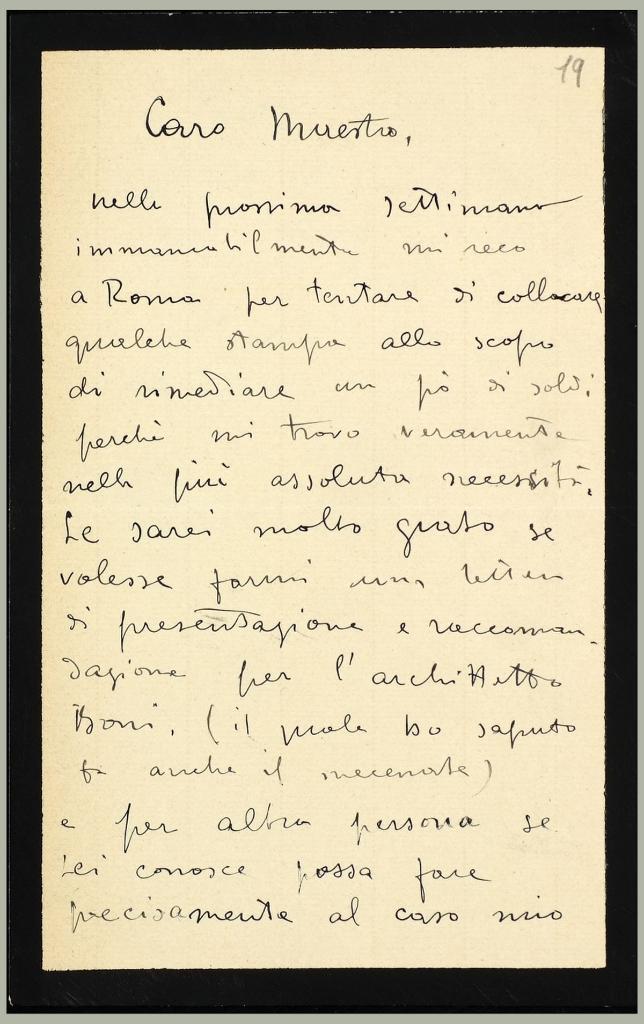 19
Caro Maestro,
nella prossima settimana
immancabilmente mi reco
a Roma per tentare di collocare
qualche stampa allo scopo
di rimediare un pò di soldi
perchè mi trovo veramente
nella più assoluta necessità.
Le sarei molto grato se
volesse farmi una lettera
di presentazione e raccoman-
dazione per l'architetto
Boni, (il quale ho saputo
fa anche il mecenate)
e per altra persona se
Lei conosce possa fare
precisamente al caso mio